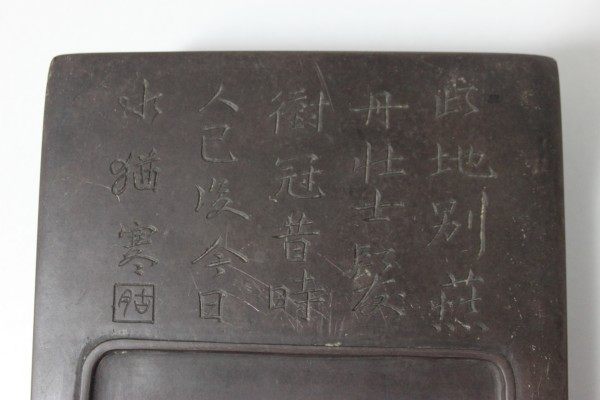 此地别燕
丹壮士髮
衝冠昔時
人已没今日
水猶寒